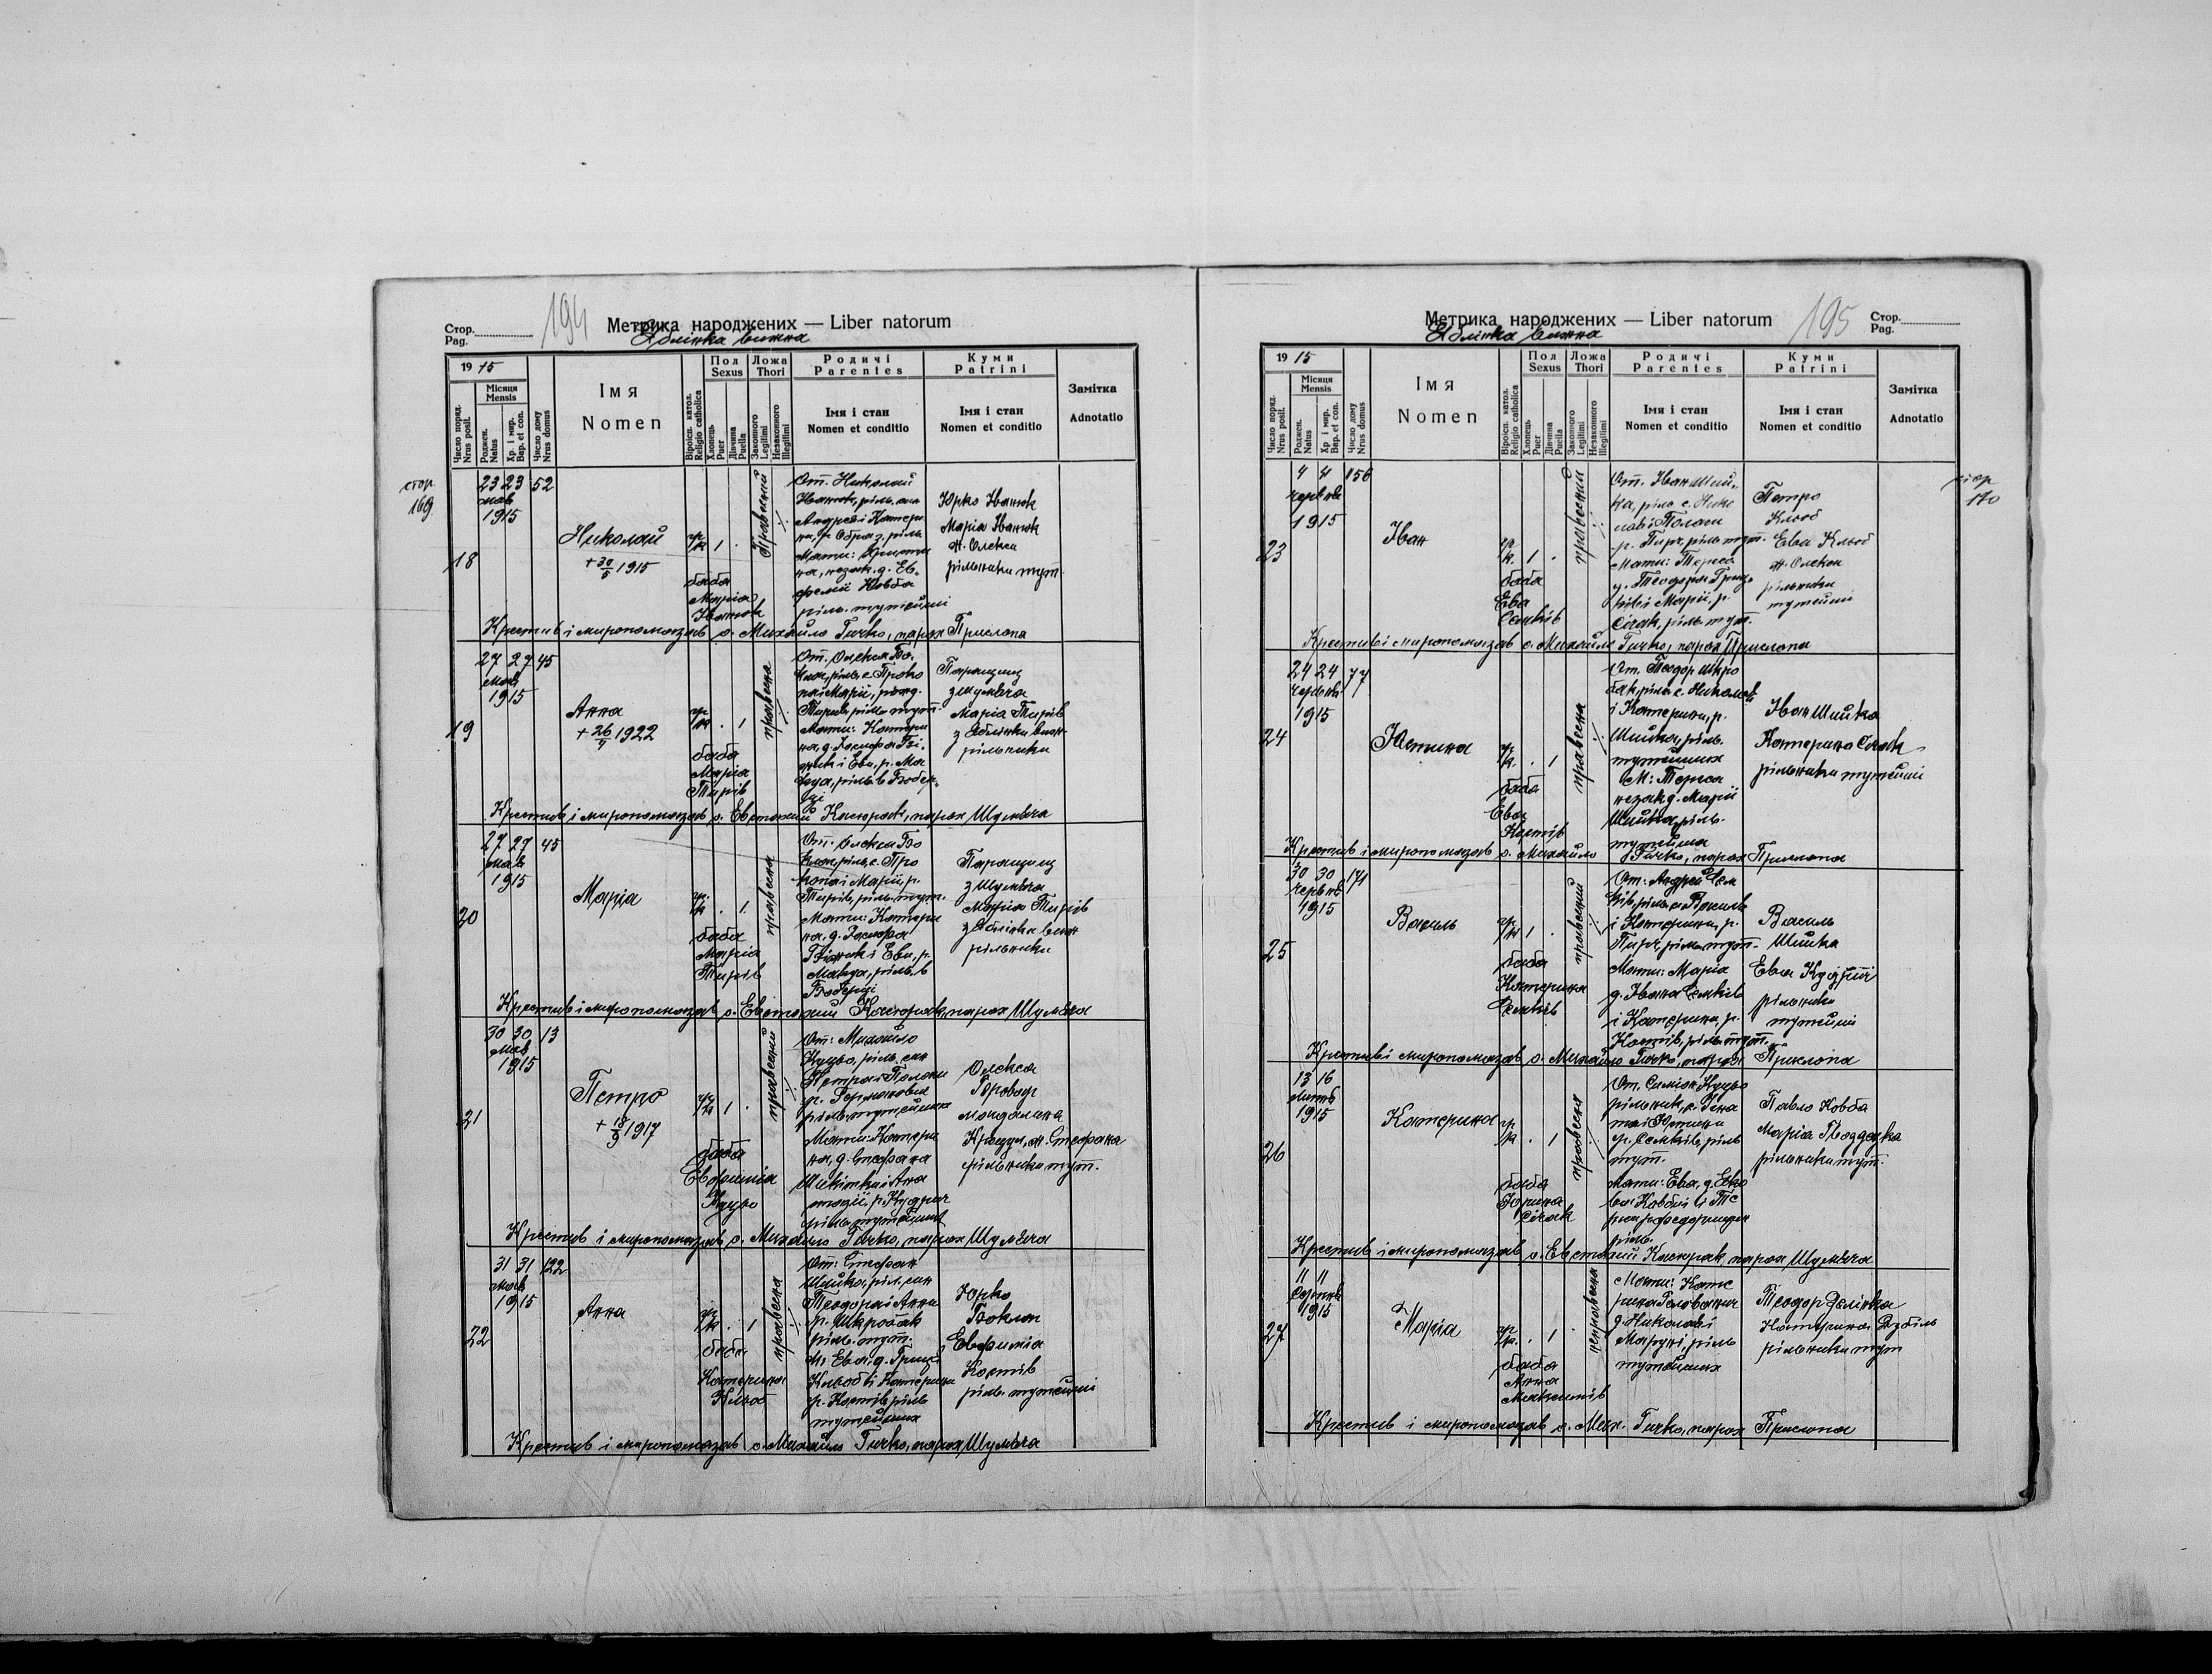 194
Стор.
Pag.
Метрика народжених — Liber natorum
Яблінка вижна
19 15
Число поряд.
Nrus posit.
Місяця
Mensis
Роджен.
Natus
Хр. і мир.
Bap. et con.
Число дому
Nrus domus
Імя
Nomen
Віроісп. катол.
Religio catholica
Пол
Sexus
Хлопець
Puer
Дівчина
Puella
Ложа
Thori
Законного
Legitimi
Незаконного
Illegitimi
Родичі
Parentes
Імя і стан
Nomen et conditio
Куми
Patrini
Імя і стан
Nomen et conditio
Замітка
Adnotatio
стор
169
18
23 23 52
мая
1915
Николай
+ 30/5 1915
гр к 1 .
баба
Марія
Іванюк
Правесний
От. Николай
Іванюк, ріль. син
Андрей і Катери
на, р. Образ, ріль
Мати: Христи
на, незак. д. Ев.
фемії Ковба
ріль. тутейші
Юрко Іванюк
Марія Іванюк
ж. Олекси
рільники тут.
Крестив і миропомазав о. Михайло Гичко, парох Прислопа
19
27 27 45
мая
1915
Анна
+ 26/4 1922
гр к . 1
баба
Марія
Тирів
правесна
От. Олекса Бо.
клах, ріль. с. Проко
па і Марії, рожд.
Тирів, ріль. тут.
Мати: Катери
на, д. Йосифа
і Еви, р. Ма
ріль. в Бобер.
ці
Паращиц
з Шумяча
Марія Тирів
з Яблінки вижн
рільники
Крестив і миропомазав о. Евстахий Касюрак, парох Шумяча
20
27 27 45
мая
1915
Марія
гр. к . 1
баба
Марія
Тирів
правесна
От. Олекса Бо
клах, ріль. с. Про
копа і Марії, р.
Тирів, ріль. тут.
Мати: Катери
на, д. Йосифа
і Еви, р.
ріль. в
Боберці
Паращиц
з Шумяча
Марія Тирів
з Яблінки вижн
рільники
Крестив і миропомазав о. Евстахий Касюрак, парох Шумяча
21
30 30 13
мая
1915
Петро
+ 18/9 1917
гр к 1 .
баба
Евфимія
Куцьо
правесний
От: Михайло
Куцьо, ріль. син
Петра і Палаги
р. Германович
ріль. тутейших
Мати: Катери
на, д. Стефана
Шийтка і Ана
тазії, р. Кудрич
ріль. тутейших
Олекса
Боровар
Магдалина
Крацул, ж. Стефана
рільники тут.
Крестив і миропомазав о. Михайло Гичко, парох Шумяча
22
31 31 122
мая
1915
Анна
гр к . 1
баба
Катерина
Кльоб
правесна
От: Стефан
Шийка, ріл. син
Теодора і Анни
р. Шкробак
ріль. тут.
М. Ева, д. Гриця
Кльоб і Катерини
р. Костів, ріль
тутейших
Юрко
Боклах
Евфимія
Костів
ріль. тутейші
Крестив і миропомазав о. Михайло Гичко, парох Шумяча
195
Стор.
Pag.
Метрика народжених — Liber natorum
Яблінка вижна
19 15
Число поряд.
Nrus posit.
Місяця
Mensis
Роджен.
Natus
Хр. і мир.
Bap. et con.
Число дому
Nrus domus
Імя
Nomen
Віроісп. катол.
Religio catholica
Пол
Sexus
Хлопець
Puer
Дівчина
Puella
Ложа
Thori
Законного
Legitimi
Незаконного
Illegitimi
Родичі
Parentes
Імя і стан
Nomen et conditio
Куми
Patrini
Імя і стан
Nomen et conditio
Замітка
Adnotatio
стор
170
23
4 4 156
червня
1915
Іван
гр к. 1 .
баба
Ева
Семків
правесний
От. Іван Ший.
ка, ріль с. Нико
лая і Палаги
р. Пирч, ріль тут.
Мати: Тереса
д. Теодора Гриц.
ків і Марії, р.
Сігак, ріль тут.
Петро
Кльоб
Ева Кльоб
ж. Олекси
рільники
тутейші
Крестив і миропомазав о. Михайло Гичко, парох Прислопа
24
24 24 77
червня
1915
Юстина
гр к. . 1
баба
Ева
Костів
правесна
От. Теодор Шкро
бак, ріль. с. Николая
і Катерини, р.
Шийка, ріль.
тутейших
М: Тереса
незак. д. Марії
Шийка, ріль.
тутейша
Іван Шийка
Катерина Сігак
рільники тутейші
Крестив і миропомазав о. Михайло Гичко, парох Прислопа
25
30 30 171
червня
1915
Василь
гр к 1 .
баба
Катерина
Семків
правесний
От: Андрей Сем
ків, ріль. с. Василя
і Катерини, р.
Пирч, ріль. тут.
Мати: Марія
д. Івана Семків
і Катерини, р.
Костів, ріль. тут.
Василь
Шийка
Ева
рільники
тутейші
Крестив і миропомазав о. Михайло Гичко, парох Прислопа
26
13 16
липня
1915
Катерина
гр к . 1
баба
Юрина
Сігак
правесна
От. Симіон Куцьо
рільник, с. Гна
та і Юстини
р. Семків, ріль
тут.
Мати: Ева, д. Яко
ва Ковбиш і Те
реси р. Федоришин
ріль.
Павло Ковба
Марія Поддерка
рільники тут.
Крестив і миропомазав о. Евстахий Касюрак, парох Шумяча
27
11 11
серпня
1915
Марія
гр к. . 1
баба
Анна
Максимів
неправесна
Мати: Кате
рина Головачич
д. Николая і
Марусі, ріль
тутейших
Теодор Делінка
Катерина Дубіль
рільники тут
Крестив і миропомазав о. Мих. Гичко, парох Прислопа